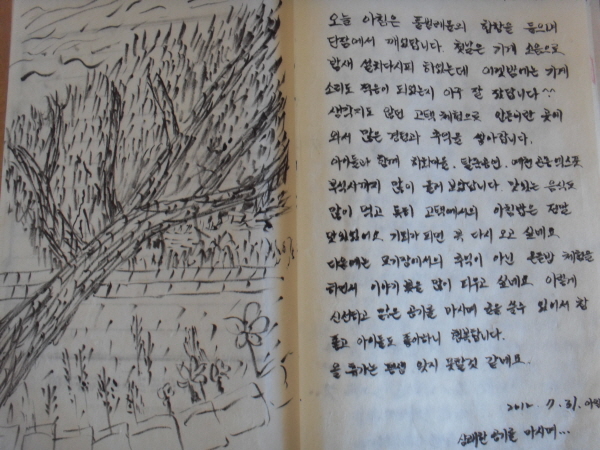 오늘 아침은 풀벌레들의 합창을 들으며
단잠에서 깨었답니다. 첫날은 기계 소음으로
밤새 설치다시피 하였는데 어젯밤에는 기계
소리도 적응이 되었는지 아주 잘 잤답니다^^
생각지도 않던 고택 체험으로 안동이란 곳에
와서 많은 경험과 추억을 쌓아갑니다.
아이들과 함께 하회마을, 탈춤공연,
부석사까지 많이 돌아 다녔답니다. 맛있는 음식도
많이 먹고 특히 고택에서의 아침밥은 정말
맛있었어요. 기회가 되면 꼭 다시 오고 싶네요
다음에는 모기장에서의 추억이 아닌 온돌방 체험을
하면서 이야기 꽃을 많이 피우고 싶네요 이렇게
신선하고 맑은 공기를 마시며 글을 쓸수 있어서 참
좋고 아이들도 좋아하니 행복합니다.
올 휴가는 평생 잊지 못할것 같네요.
2012. 7. 31. 아침
공기를 마시며...